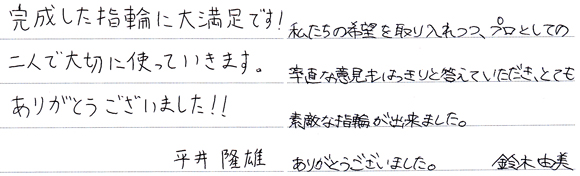 完成した指輪に大満足です!
二人で大切に使っていきます。
ありがとうございました!!
平井 隆雄
私たちの希望を取り入れつつ、プロとしての
率直な意見もはっきりと答えていただき、とても
素敵な指輪が出来ました。
ありがとうございました。 鈴木由美